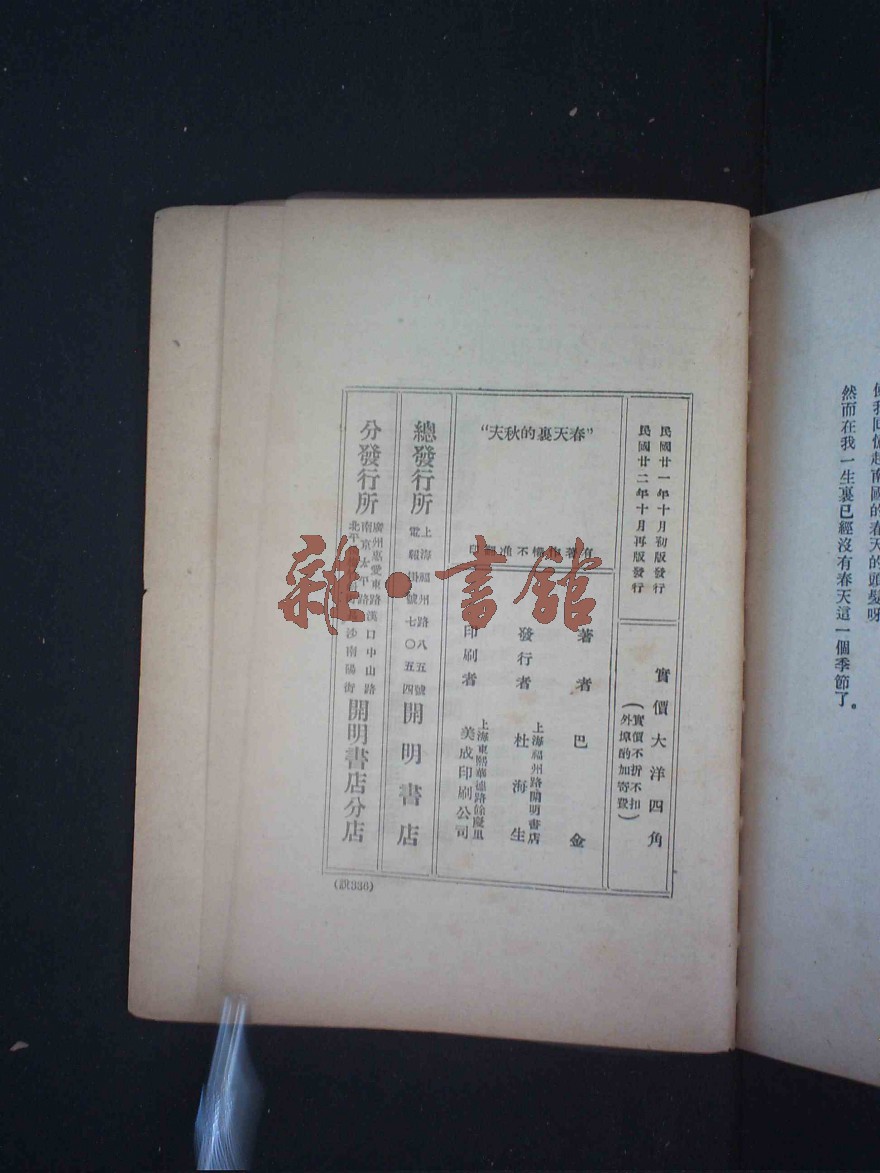 使我回憶起南國的春天的頭髮呀
然而在我一生裏已經沒有春天這一個季節了。
民國廿一年十月初版發行
民國廿二年十月再版發行
實價大洋四角
(實價不折不扣
外埠酌加寄費)
“春天裏的秋天”
有著作權不准翻印
著者 巴金
發行者 上海福州路開明書店
杜海生
印刷者 上海東熙華德路餘慶里
美成印刷公司
總發行所 上海福州路八五號
電報掛號七〇五四
開明書店
分發行所 廣州惠愛東路 漢口中山路
南京太平路
沙南陽街
北平
開明書店分店
(說336)
雜·書館